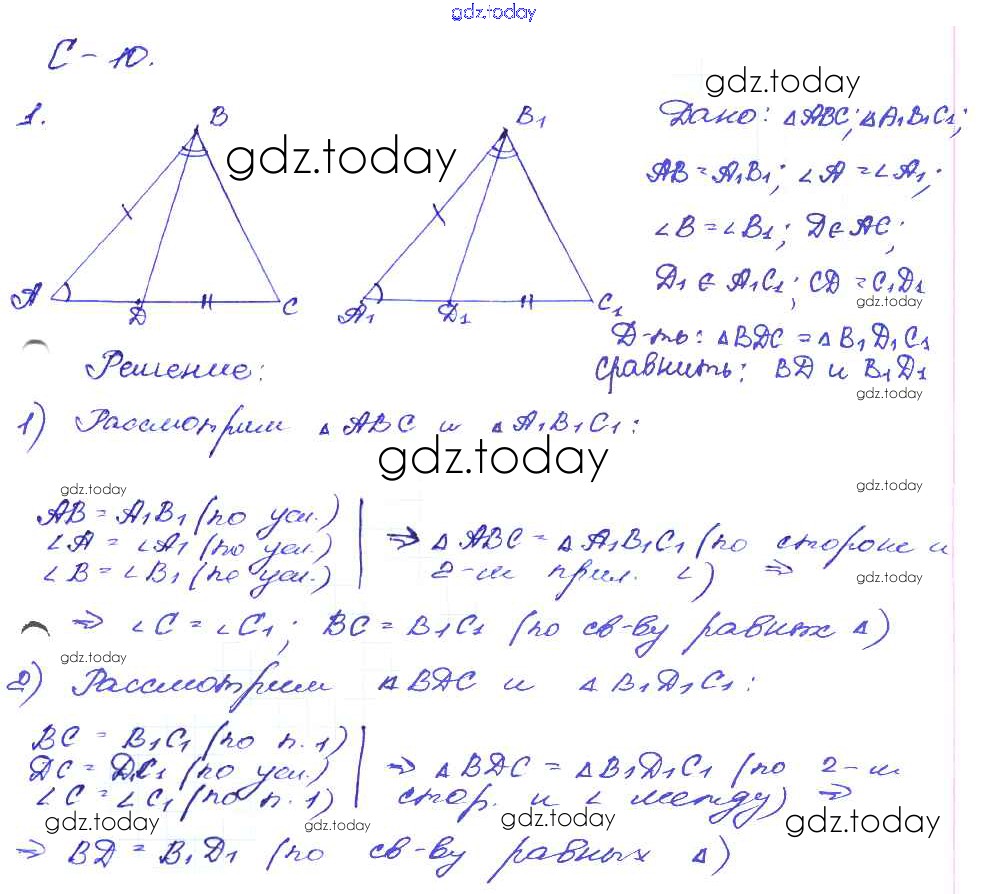 gdz.today
С-10.
gdz.today
1.
B
B₁
gdz.today
A
D
C
A₁
D₁
C₁
Дано: △ABC; △A₁B₁C₁;
AB = A₁B₁; ∠A = ∠A₁;
∠B = ∠B₁; D ∈ AC;
D₁ ∈ A₁C₁; CD = C₁D₁
gdz.today
Д-ть: △BDC = △B₁D₁C₁
Сравнить: BD и B₁D₁
gdz.today
Решение:
1) Рассмотрим △ABC и △A₁B₁C₁:
gdz.today
gdz.today
gdz.today
AB = A₁B₁ (по усл.)
∠A = ∠A₁ (по усл.)
∠B = ∠B₁ (по усл.)
⇒ △ABC = △A₁B₁C₁ (по стороне и
2-м прил. ∠) ⇒
gdz.today
⇒ ∠C = ∠C₁; BC = B₁C₁ (по св-ву равных △)
gdz.today
2) Рассмотрим △BDC и △B₁D₁C₁:
BC = B₁C₁ (по п. 1)
DC = D₁C₁ (по усл.)
∠C = ∠C₁ (по п. 1)
⇒ △BDC = △B₁D₁C₁ (по 2-м
стор. и ∠ между) ⇒
gdz.today
gdz.today
gdz.today
gdz.today
⇒ BD = B₁D₁ (по св-ву равных △)